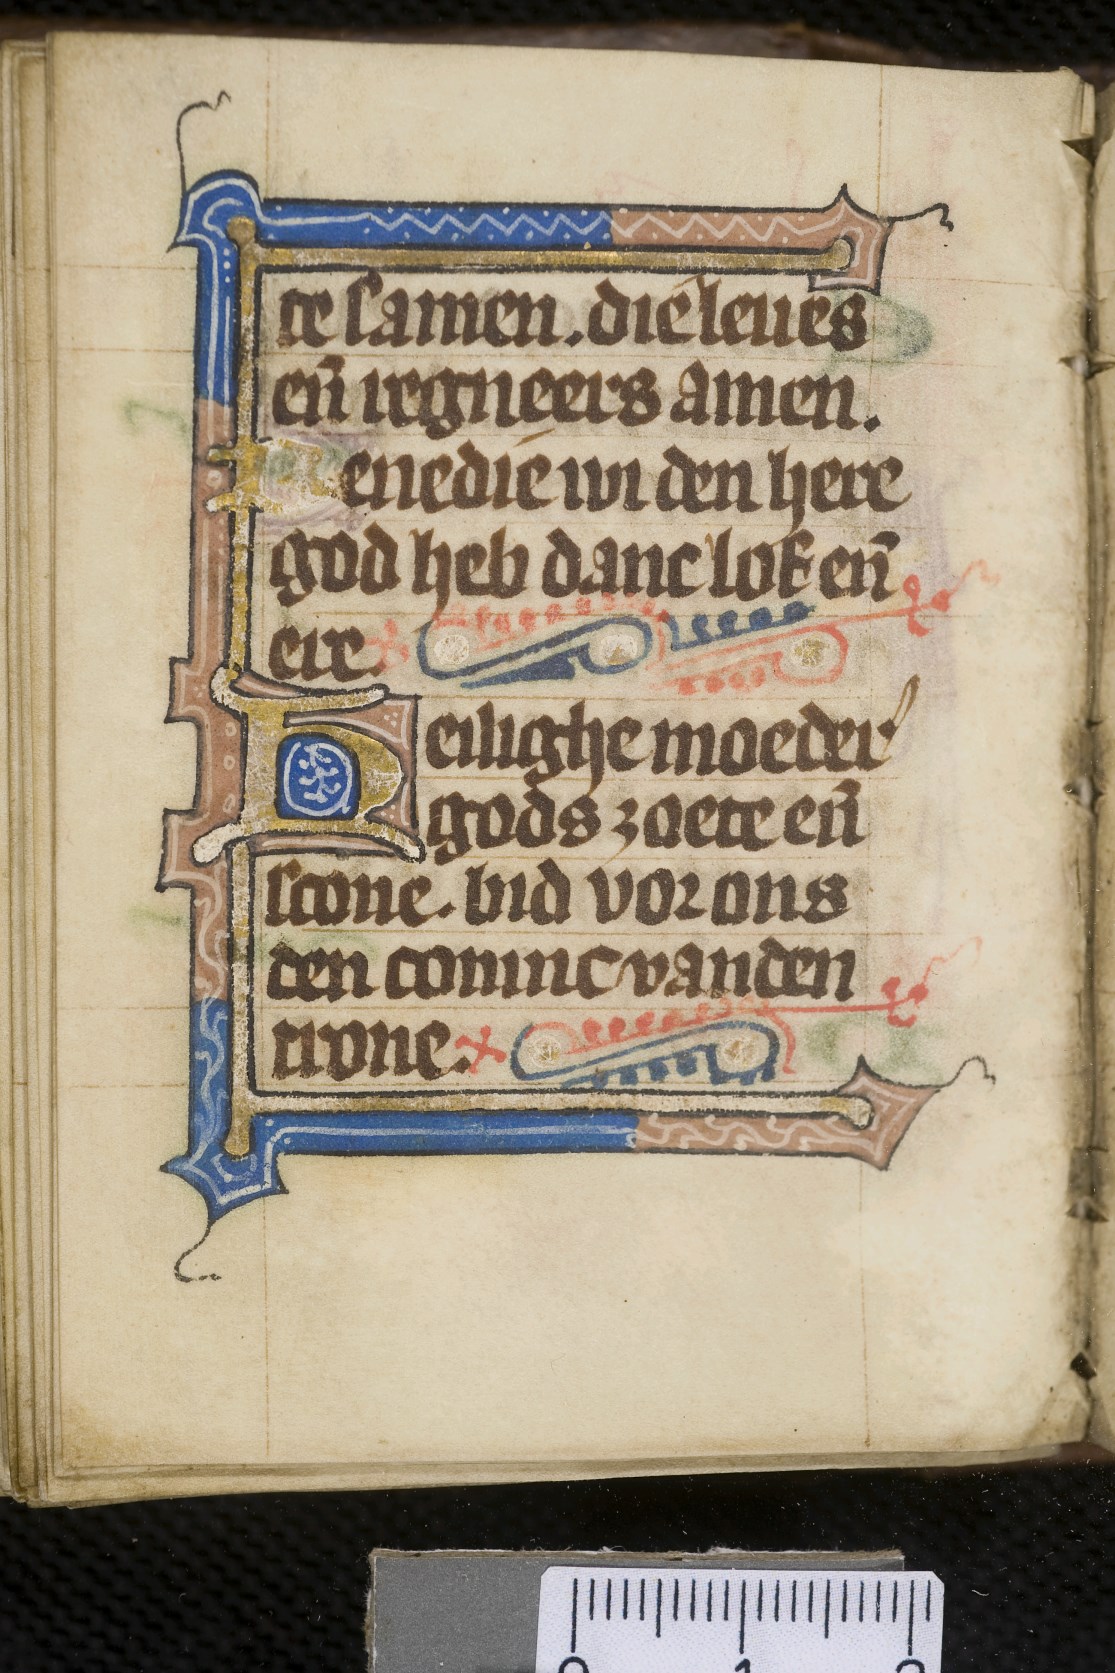 te samen. die leues
eñ regneers amen.
Benedie wi den here
god heb danc lof eñ
ere.
Heilighe moeder
gods zoete eñ
scone. bid vor ons
den coninc vanden
trone.
0 1 2